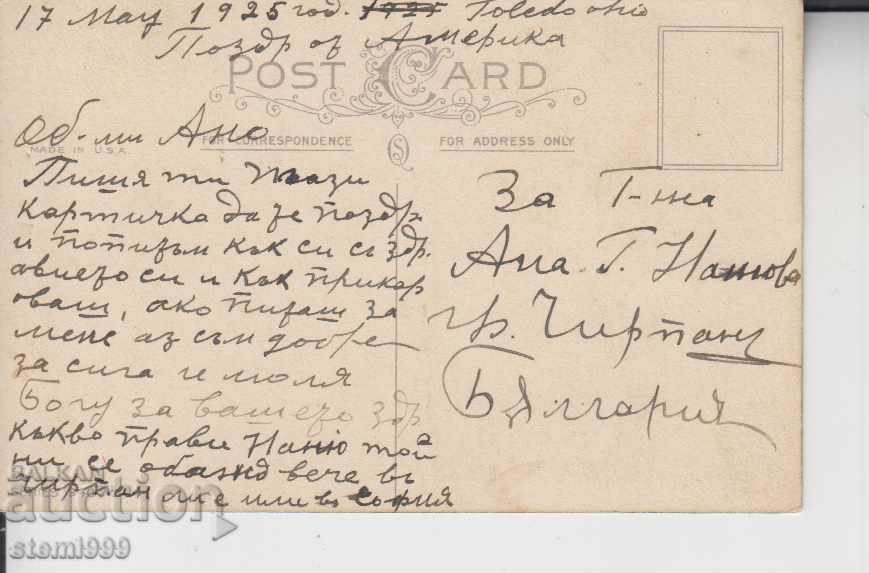 17 Мау 1925 год. 1925 Toledo ohio
Поздр от Америка
POST CARD
Об-ми Ано
FOR CORRESPONDENCE
FOR ADDRESS ONLY
MADE IN U.S.A.
Пишя ти тази
картичка да те поздр
и попитъм как си съ здр.
авието си и как прикар
оваш, ако питаш за
мене аз съм добре
за сига и моля
Богу за вашето здр
какво прави Наню той
ни се обажд вече въ
Чирпан ли е или въ София
За Г-жа
Ана. Г. Нанюва
гр. Чирпанъ
България
BALKAN
auction
stemi999